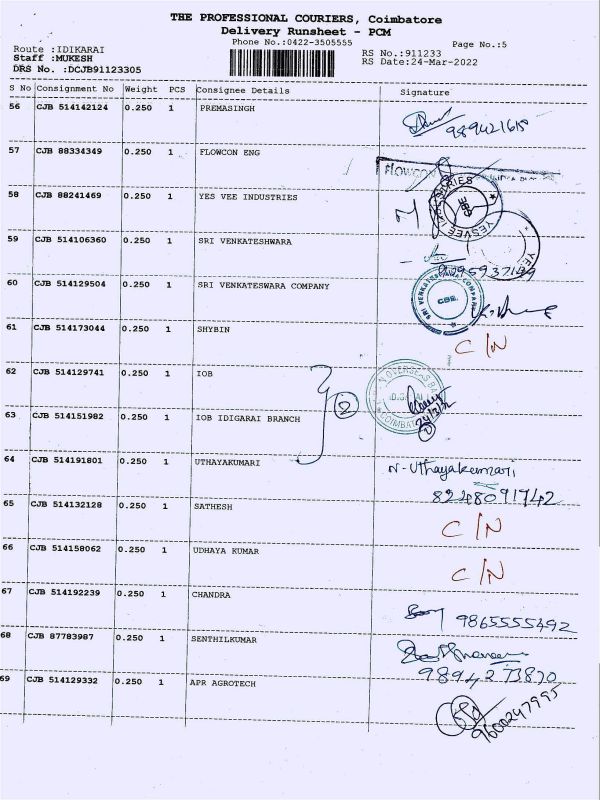 THE PROFESSIONAL COURIERS, Coimbatore
Delivery Runsheet - PCM
Phone No.:0422-3505555
Page No.:5
Route :IDIKARAI
RS No.:911233
Staff :MUKESH
RS Date:24-Mar-2022
DRS No. :DCJB91123305
S No Consignment No Weight PCS Consignee Details Signature
56 CJB 514142124 0.250 1 PREMASINGH
57 CJB 88334349 0.250 1 FLOWCON ENG
FLOWCON
58 CJB 88241469 0.250 1 YES VEE INDUSTRIES
YESVEE INDUSTRIES
59 CJB 514106360 0.250 1 SRI VENKATESHWARA
60 CJB 514129504 0.250 1 SRI VENKATESWARA COMPANY
SRI VENKATESWARA COMPANY
CBE.
61 CJB 514173044 0.250 1 SHYBIN
C/N
62 CJB 514129741 0.250 1 IOB
2
63 CJB 514151982 0.250 1 IOB IDIGARAI BRANCH
64 CJB 514191801 0.250 1 UTHAYAKUMARI N-Uthayakumari
8248091742
65 CJB 514132128 0.250 1 SATHESH
C/N
66 CJB 514158062 0.250 1 UDHAYA KUMAR
C/N
67 CJB 514192239 0.250 1 CHANDRA
9865555492
68 CJB 87783987 0.250 1 SENTHILKUMAR
9894273870
69 CJB 514129332 0.250 1 APR AGROTECH
9600247995